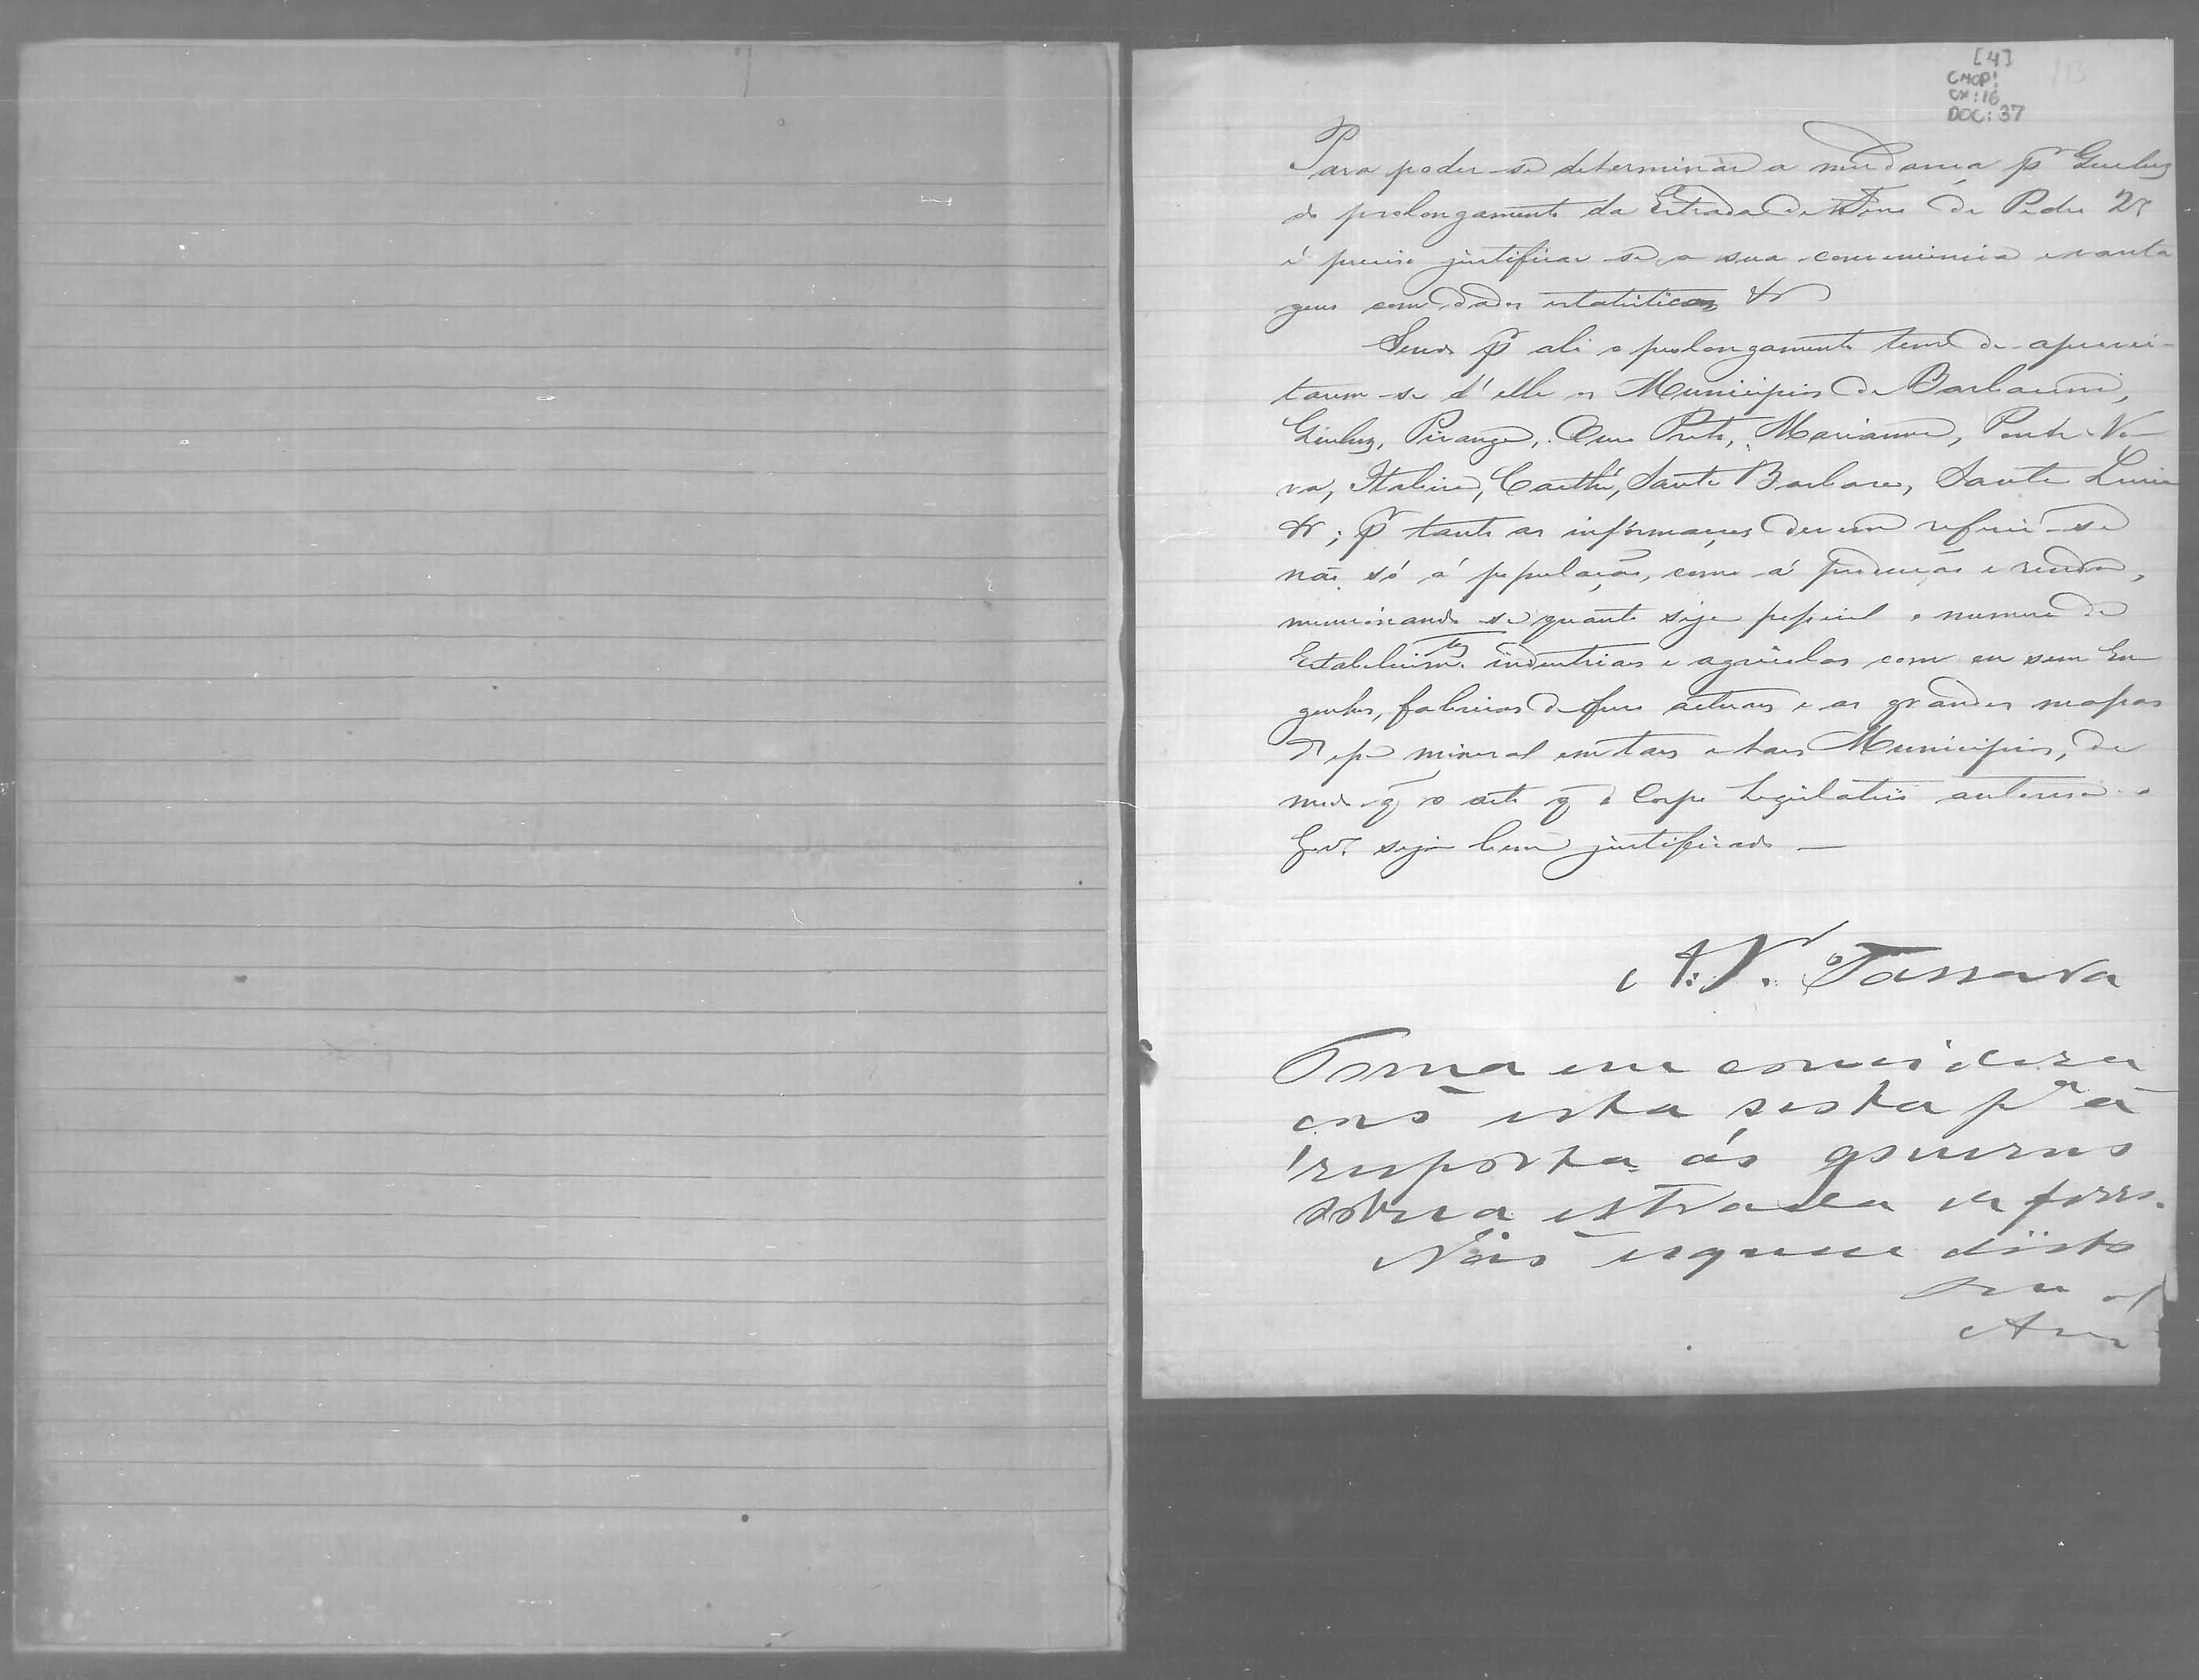 [4]
CMOP!
CX: 16
DOC: 37
113
Para poder-se determinar a mudança pª Queluz
do prolongamento da Estrada de Ferro de Pedro 2º
é preciso justificar-se a sua conveniencia e vanta
gens com dados estatisticos &
Sendo pª ali o prolongamento tem de aprovei-
tarem-se d'elle os Municipios de Barbacena,
Queluz, Piranga, Ouro Preto, Marianna, Ponte No
va, Itabira, Caethé, Santa Barbara, Santa Luzia
&; pr tanto as informações devem referir-se
não só á população, como á producção e renda,
mencionando-se quanto seja possivel o numero de
Estabelecimtos industriaes e agricolas com ou sem En
genhos, fabricas de e as grandes massas
mineral em taes e taes Municipios, de
modo q o acto q o Corpo Legislativo autorisa o
Govº seja bem justificado —
A. V. Tassara
Toma em considera
cão esta pª a
resposta áo governo
sobre a estrada de ferro.
Não esqueça disto